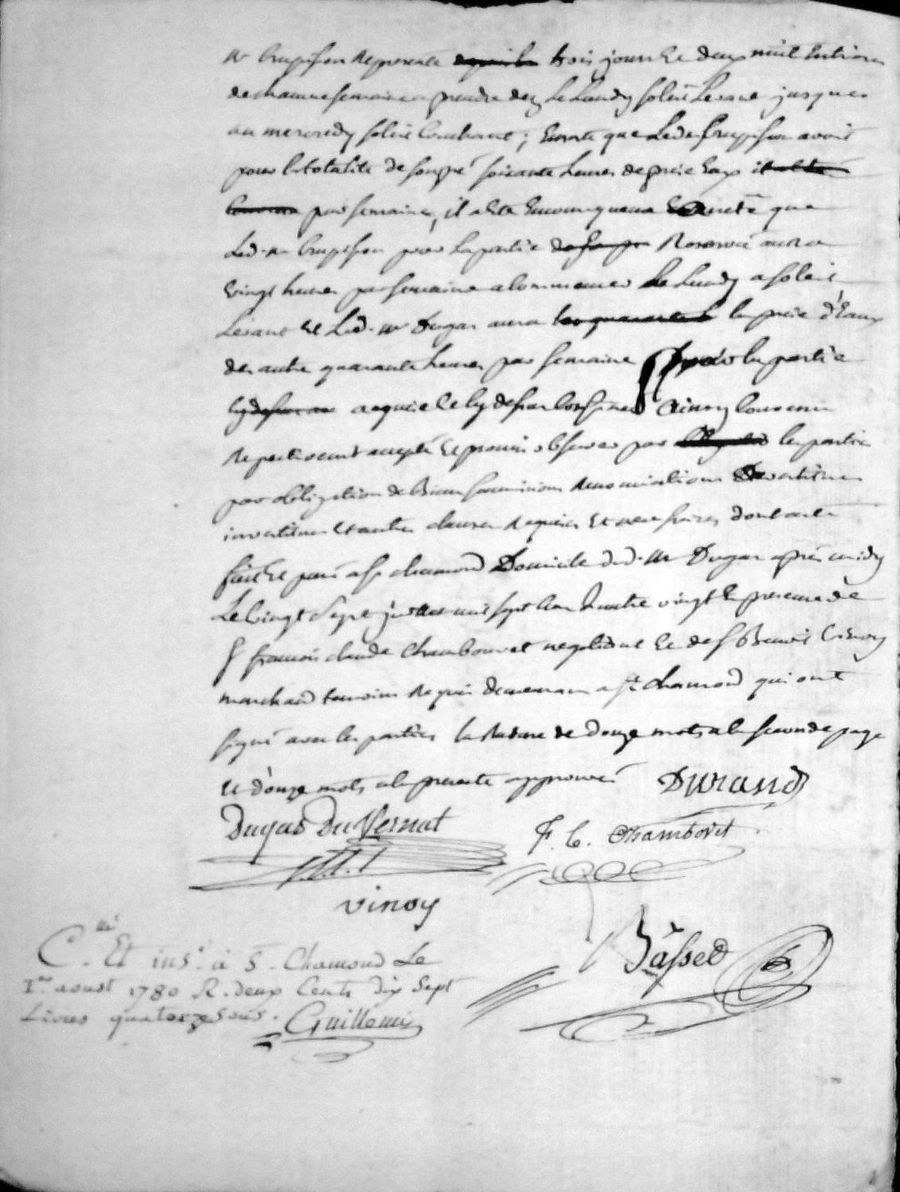 mr Crupisson represente trois jours Et deux nuit Entieres
de chacune semaine a prendre dez Le Lundy soleil Levant jusques
au mercredy soleil Couchant; Ensorte que Led. sr Crupisson avoit
pour la totalité de son pré soixante heures de prise d'eaux
par semaine, il a été Encore convenu que
Led. mr Crupisson pour la partie Reservée aura
vingt heures par semaine a Commencer Le Lundy a soleil
Levant Et Led. mr Dugas aura la prise d'Eaux
des autre quarante heures par semaine la partie
acquise Et cy dessus Confinée ainsy Convenu
Respectivement accepté Et promis observer par les parties
par obligation de Biens soumissions Renonciations
et autres clauses Requises Et necessaires dont acte
fait Et passé a st chamond Domicile dud. mr Dugas après midy
Le vingt Sept juillet mil sept Cent quatre vingt En presence de
sr françois claude Chambouvet negotiant Et de sr Benoit Vinoy
marchand temoins Requis demeurant a st chamond qui ont
signé avec les parties la Rature de douze mots a la seconde page
Et d'onze mots a la presente approuvée DURAND
Dugas Du Vernat
F. C. Chambovet
vinoy
Bâsset
C.lé Et ins.é à S. Chamond Le
1.er aoust 1780 R. deux Cents dix Sept
Livres quatorze sous. Guillemin